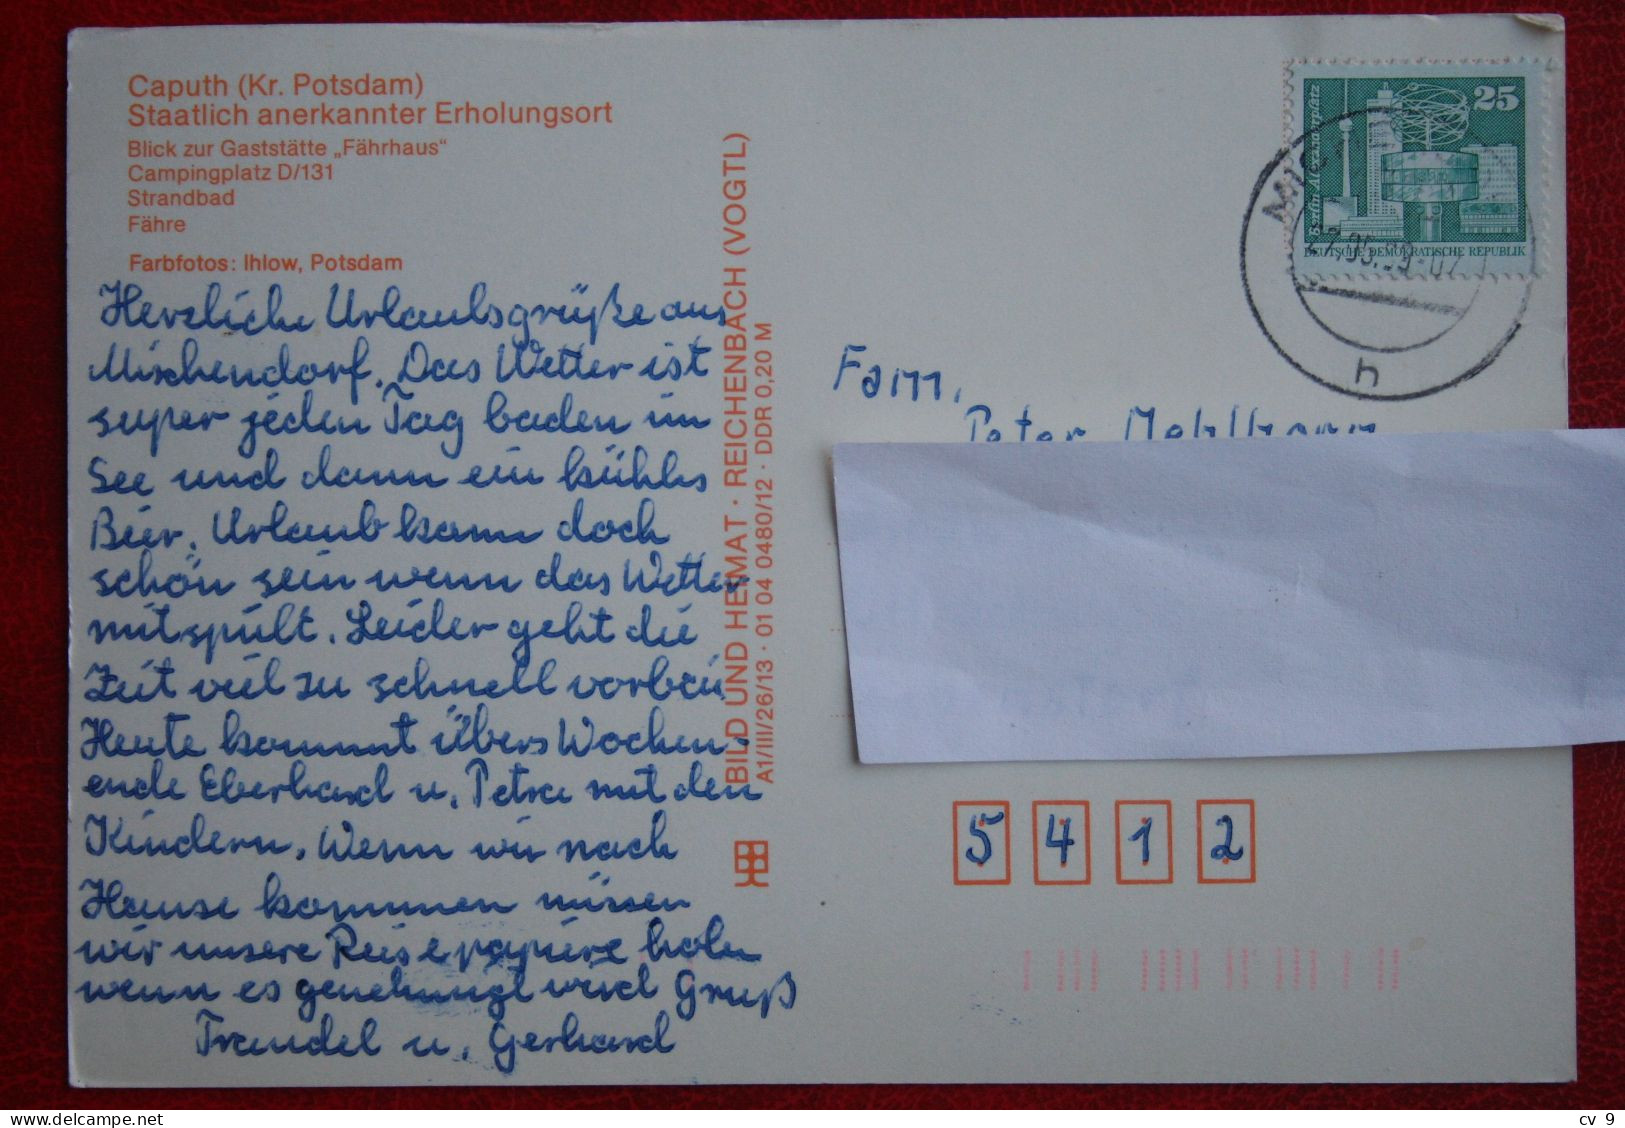 Caputh (Kr. Potsdam)
Staatlich anerkannter Erholungsort
Blick zur Gaststätte „Fährhaus“
Campingplatz D/131
Strandbad
Fähre
Farbfotos: Ihlow, Potsdam
Herzliche Urlaubsgrüße aus
Michendorf. Das Wetter ist
super jeden Tag baden im
See und dann ein kühles
Bier. Urlaub kann doch
schön sein wenn das Wetter
mitspielt. Leider geht die
Zeit viel zu schnell vorbei
Heute kommt übers Wochen-
ende Eberhard u. Petra mit den
Kindern. Wenn wir nach
Hause kommen müssen
wir unsere Reisepapiere holen
wenn es genehmigt wird Gruß
Traudel u. Gerhard
BILD UND HEIMAT · REICHENBACH (VOGTL)
A1/III/26/13 · 01 04 0480/12 · DDR 0,20 M
25
Berlin, Alexanderplatz
DEUTSCHE DEMOKRATISCHE REPUBLIK
h
Fam.
Peter
5 4 1 2
cv 9